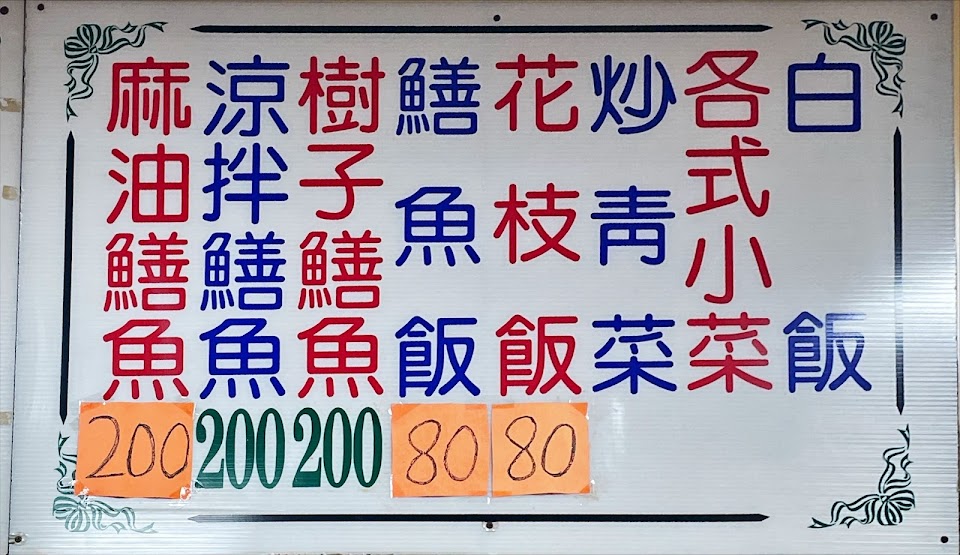 白飯
各式小菜
炒青菜
花枝飯
80
鱔魚飯
80
樹子鱔魚
200
涼拌鱔魚
200
麻油鱔魚
200